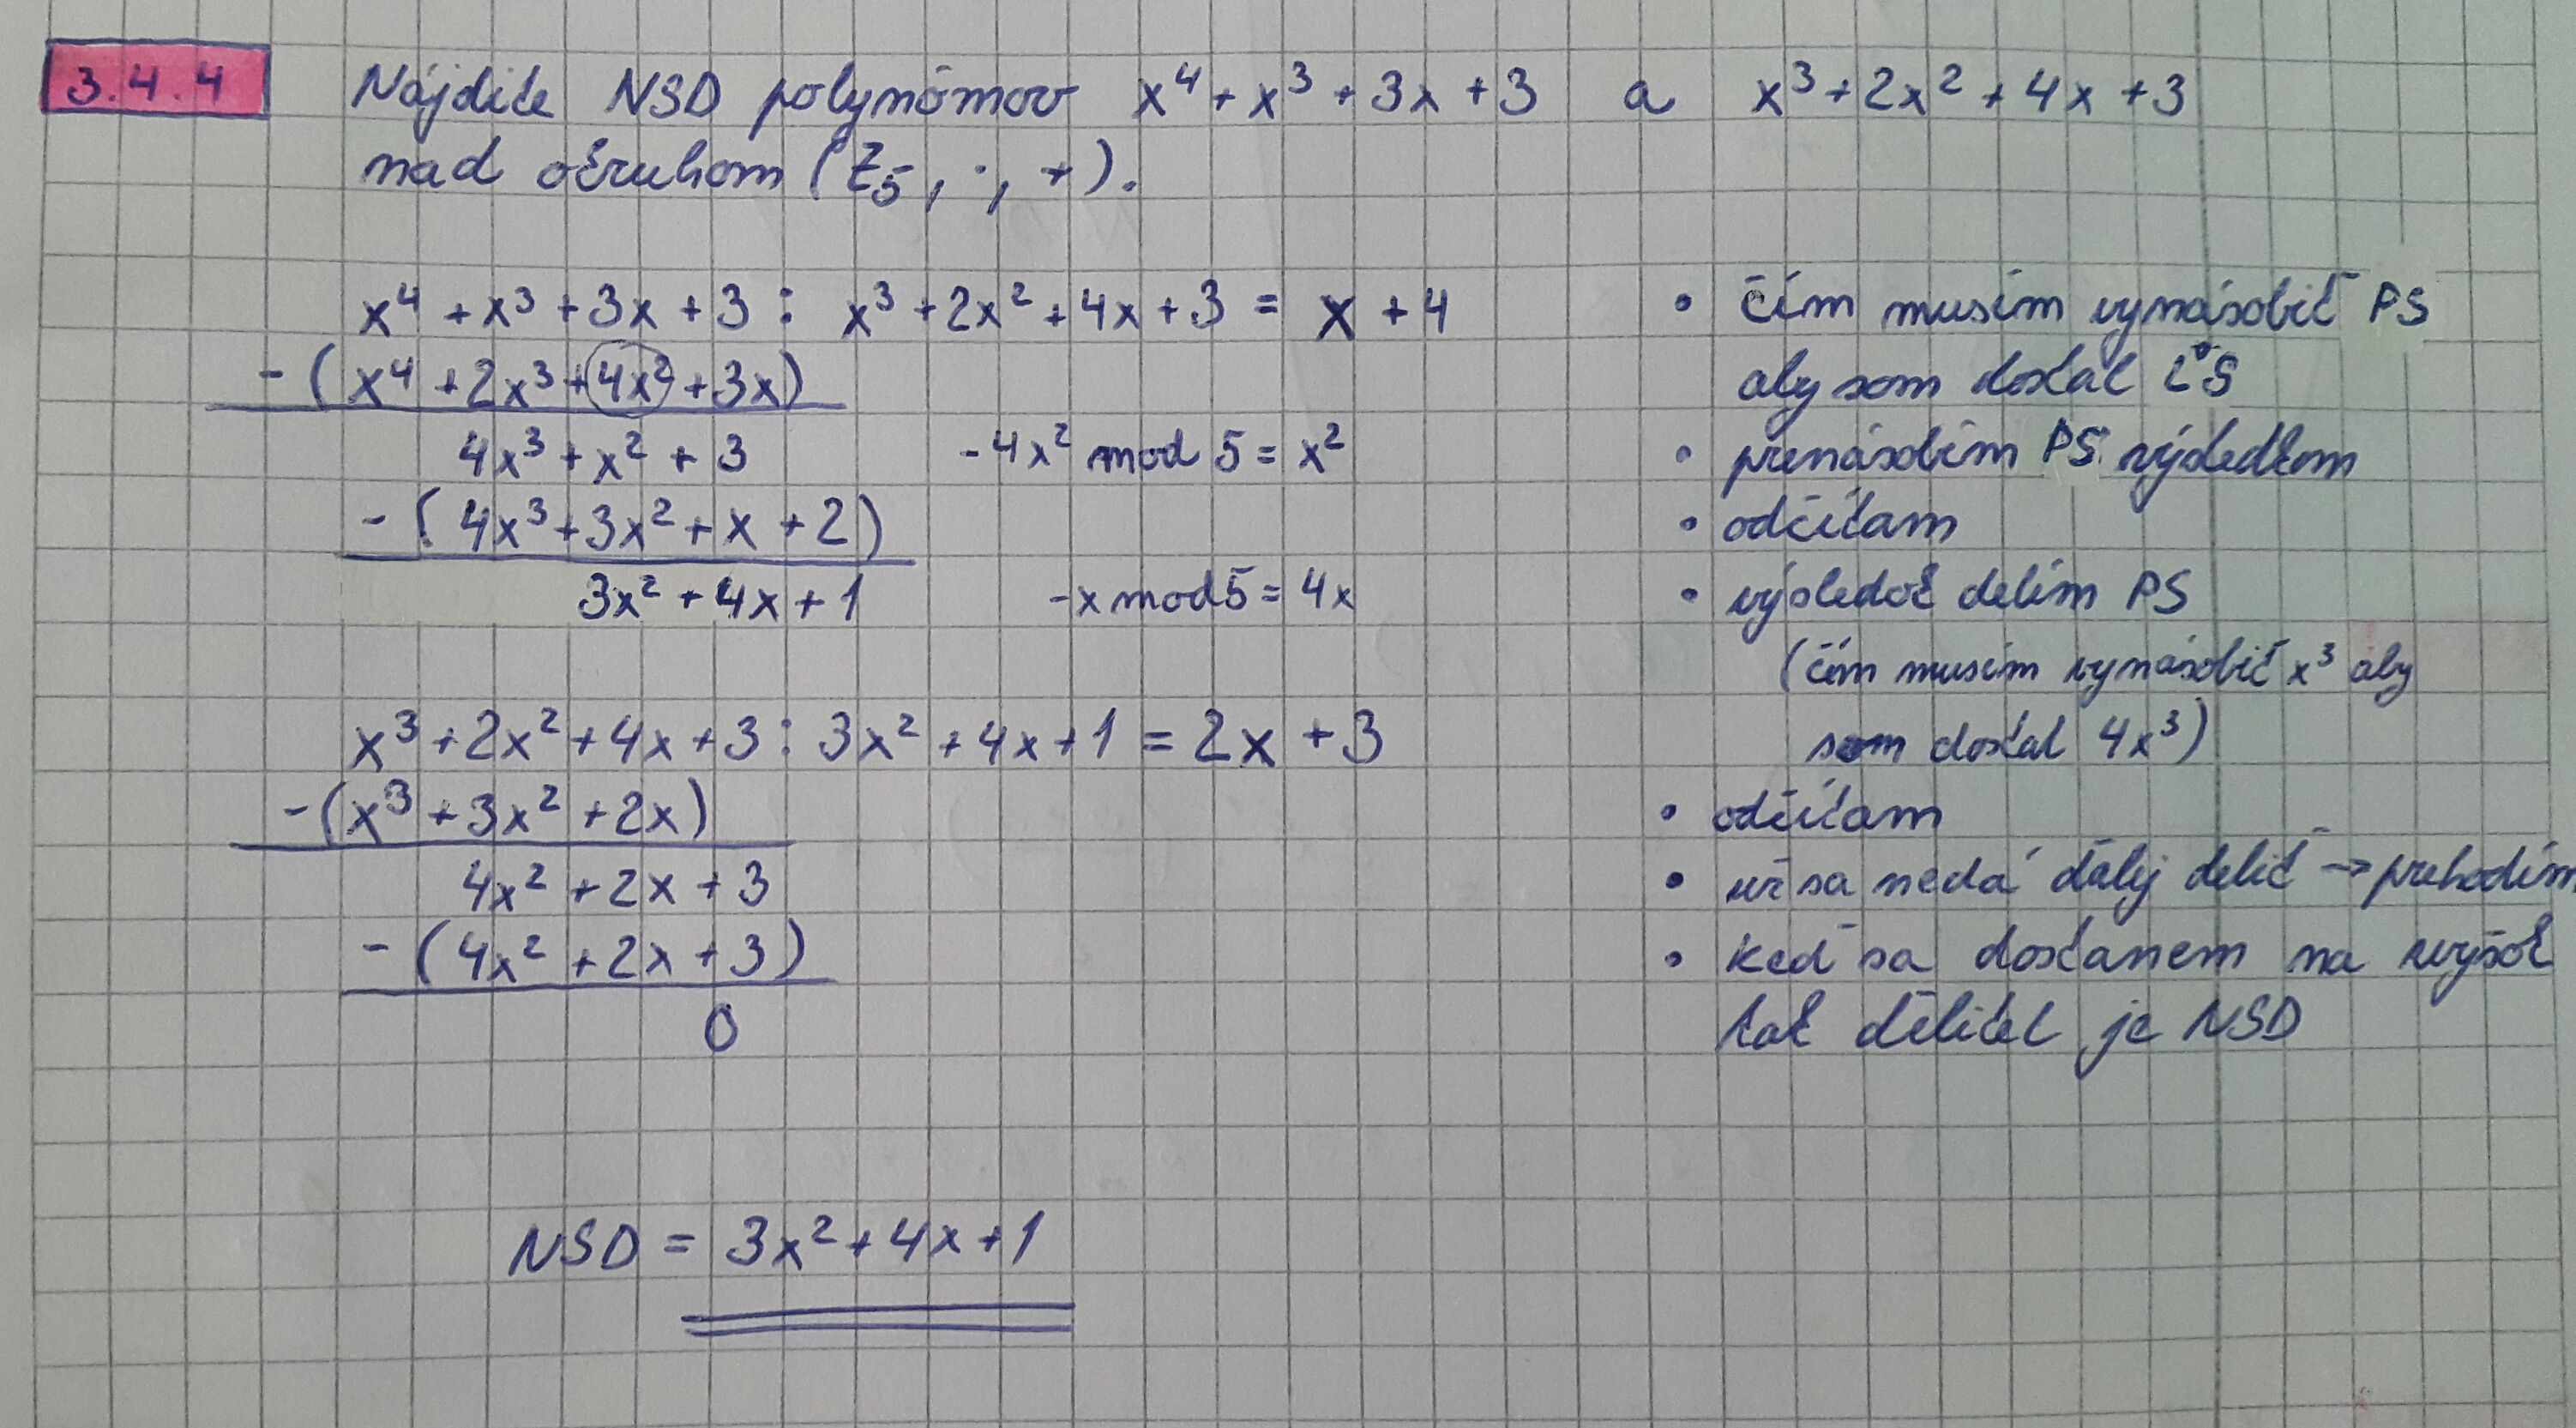 3.4.4 Nájdite NSD polynómov x⁴ + x³ + 3x + 3 a x³ + 2x² + 4x + 3
nad okruhom (Z₅, ·, +).
x⁴ + x³ + 3x + 3 : x³ + 2x² + 4x + 3 = x + 4
- (x⁴ + 2x³ + 4x² + 3x)
4x³ + x² + 3 -4x² mod 5 = x²
- (4x³ + 3x² + x + 2)
3x² + 4x + 1 -x mod 5 = 4x
x³ + 2x² + 4x + 3 : 3x² + 4x + 1 = 2x + 3
- (x³ + 3x² + 2x)
4x² + 2x + 3
- (4x² + 2x + 3)
0
NSD = 3x² + 4x + 1
• čím musím vynásobiť PS
aby som dostal ĽS
• prenásobím PS výsledkom
• odčítam
• výsledok delím PS
(čím musím vynásobiť x³ aby
som dostal 4x³)
• odčítam
• už sa nedá ďalej deliť → prehodím
• keď sa dostanem na
tak deliteľ je NSD